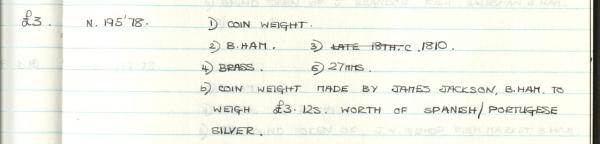 £3. N. 195'78. 1) COIN WEIGHT.
2) B.HAM. 3) LATE 18TH.C. 1810.
4) BRASS. 5) 27MMS.
6) COIN WEIGHT MADE BY JAMES JACKSON, B.HAM. TO
WEIGH £3.12s. WORTH OF SPANISH/PORTUGESE
SILVER.